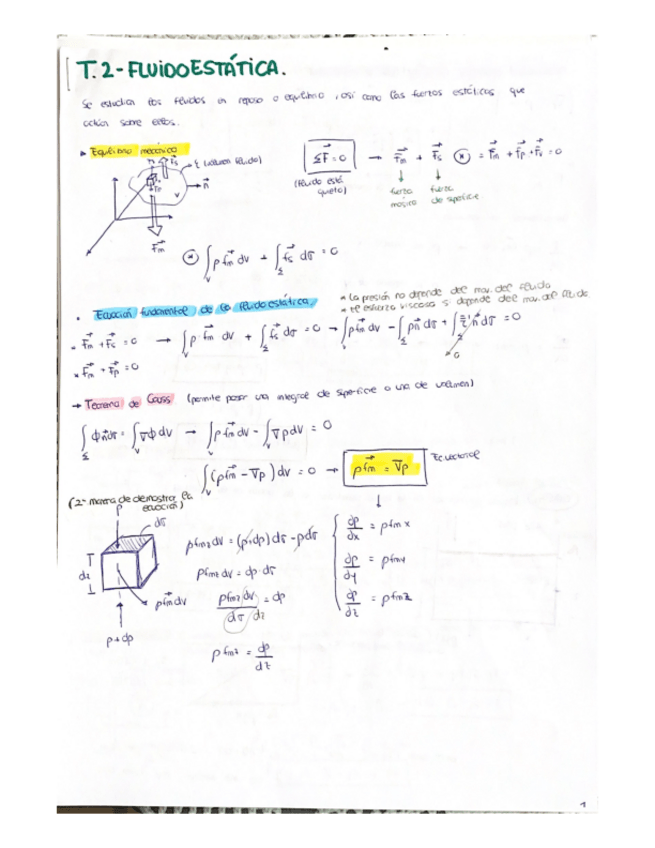 T.2- FLUIDOESTÁTICA.
Se estudian los fluidos en reposo o equilibrio, así como las fuerzas estáticas que
actúan sobre estos.
Equilibrio mecánico
Σ (volumen fluido)
V
n⃗
F⃗m
ΣF⃗ = 0 → F⃗m + F⃗s ⊛ = F⃗m + F⃗p + F⃗v = 0
(fluido está quieto)
fuerza másica
fuerza de superficie
⊛ ∫_V ρ f⃗m dV + ∫_Σ f⃗s dσ = 0
• Ecuación fundamental de la fluidoestática.
* La presión no depende del mov. del fluido
* El esfuerzo viscoso sí depende del mov. del fluido
* F⃗m + F⃗s = 0 → ∫_V ρ · f⃗m dV + ∫_Σ f⃗s dσ = 0 → ∫_V ρ f⃗m dV - ∫_Σ p n⃗ dσ + ∫_Σ τ' n⃗ dσ = 0
0
* F⃗m + F⃗p = 0
→ Teorema de Gauss (permite pasar una integral de superficie a una de volumen)
∫_Σ ϕ n⃗ dσ = ∫_V ∇ϕ dV → ∫_V ρ f⃗m dV - ∫_V ∇p dV = 0
∫_V (ρ f⃗m - ∇p) dV = 0 → ρ f⃗m = ∇p
Ec vectorial
(2ª manera de demostrar la ecuación)
p
dσ
dz
ρ f⃗m dV
p + dp
ρ fmz dV = (p + dp) dσ - p dσ
ρ fmz dV = dp · dσ
ρ fmz dV / dσ dz = dp
ρ fmz = dp/dz
dp/dx = ρ fmx
dp/dy = ρ fmy
dp/dz = ρ fmz
1